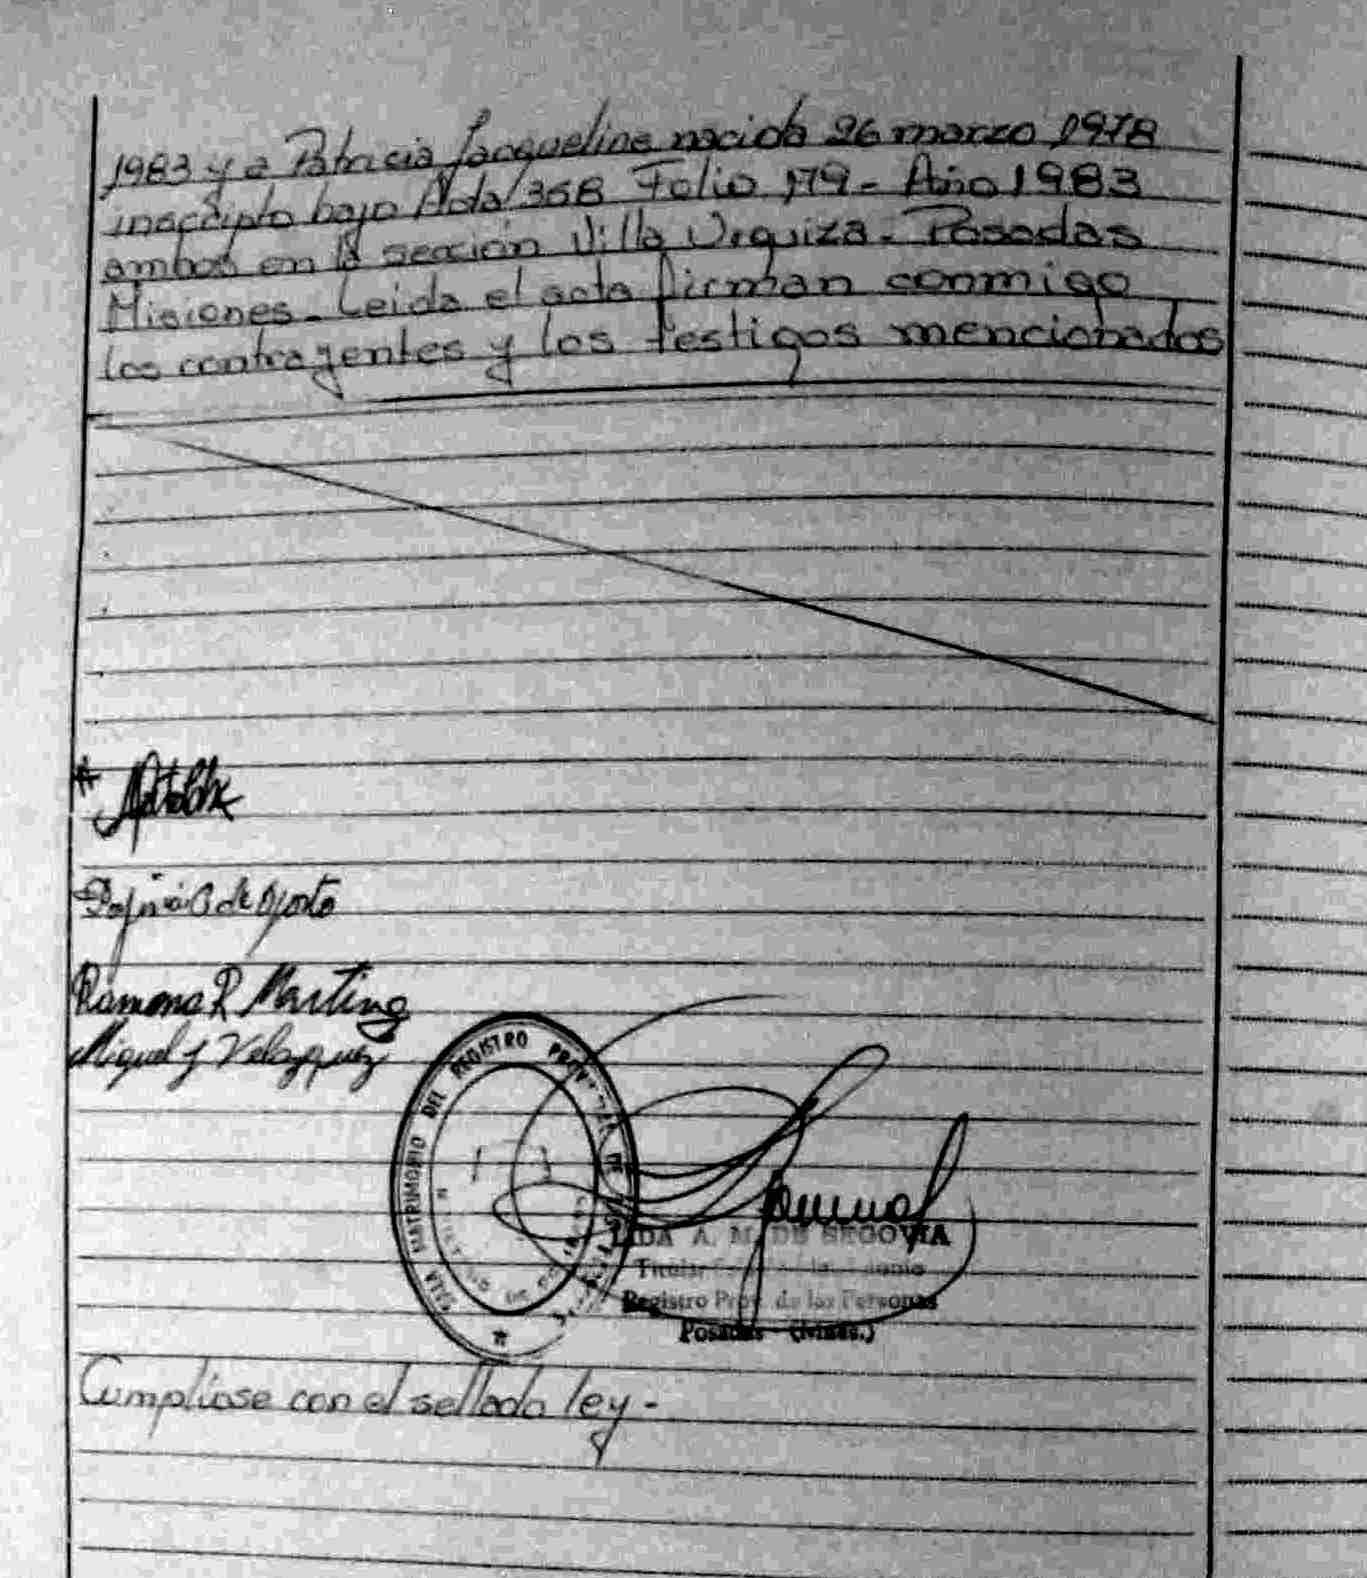 1983 y a Patricia Jacqueline nacida 26 marzo 1978
inscripto bajo Acta 368 Folio 179 - Año 1983
ambos en la sección Villa Urquiza - Posadas
Misiones - Leida el acta firman conmigo
los contrayentes y los testigos mencionados
Ramona R Martinez
Miguel J Velazquez
MATRIMONIO DEL REGISTRO PROV
LIDA A. M. DE SEGOVIA
Titular
Registro Prov. de las Personas
Posadas (Mnes.)
Cumpliose con el sellado ley -